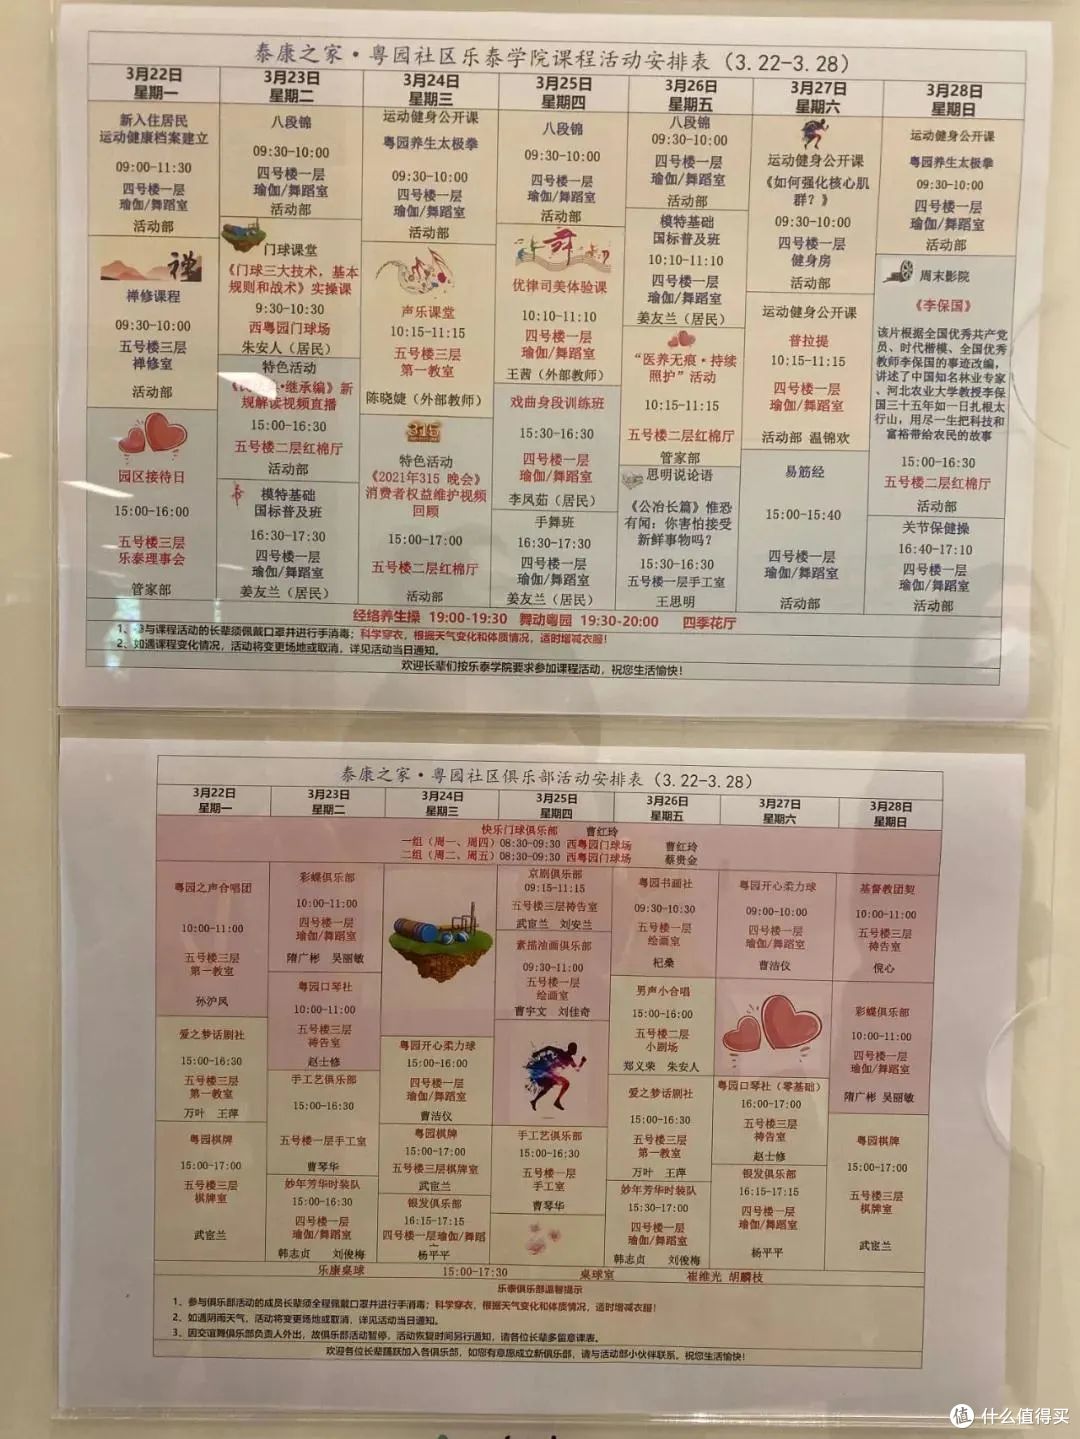 泰康之家·粤园社区乐泰学院课程活动安排表（3.22-3.28）
3月22日
星期一
3月23日
星期二
3月24日
星期三
3月25日
星期四
3月26日
星期五
3月27日
星期六
3月28日
星期日
新入住居民
运动健康档案建立
09:00-11:30
四号楼一层
瑜伽/舞蹈室
活动部
禅
禅修课程
09:30-10:00
五号楼三层
禅修室
活动部
园区接待日
15:00-16:00
五号楼三层
乐泰理事会
管家部
八段锦
09:30-10:00
四号楼一层
瑜伽/舞蹈室
活动部
门球课堂
《门球三大技术，基本
规则和战术》实操课
9:30-10:30
西粤园门球场
朱安人（居民）
特色活动
·继承编》新
规解读视频直播
15:00-16:30
五号楼二层红棉厅
活动部
模特基础
国标普及班
16:30-17:30
四号楼一层
瑜伽/舞蹈室
姜友兰（居民）
运动健身公开课
粤园养生太极拳
09:30-10:00
四号楼一层
瑜伽/舞蹈室
活动部
声乐课堂
10:15-11:15
五号楼三层
第一教室
陈晓婕（外部教师）
315
特色活动
《2021年315 晚会》
消费者权益维护视频
回顾
15:00-17:00
五号楼二层红棉厅
活动部
八段锦
09:30-10:00
四号楼一层
瑜伽/舞蹈室
活动部
优律司美体验课
10:10-11:10
四号楼一层
瑜伽/舞蹈室
王茜（外部教师）
戏曲身段训练班
15:30-16:30
四号楼一层
瑜伽/舞蹈室
李凤茹（居民）
手舞班
16:30-17:30
四号楼一层
瑜伽/舞蹈室
姜友兰（居民）
八段锦
09:30-10:00
四号楼一层
瑜伽/舞蹈室
活动部
模特基础
国标普及班
10:10-11:10
四号楼一层
瑜伽/舞蹈室
姜友兰（居民）
“医养无痕·持续
照护”活动
10:15-11:15
五号楼二层红棉厅
管家部
思明说论语
《公冶长篇》惟恐
有闻：你害怕接受
新鲜事物吗？
15:30-16:30
五号楼一层手工室
王思明
运动健身公开课
《如何强化核心肌
群？》
09:30-10:00
四号楼一层
健身房
活动部
运动健身公开课
普拉提
10:15-11:15
四号楼一层
瑜伽/舞蹈室
活动部 温锦欢
易筋经
15:00-15:40
四号楼一层
瑜伽/舞蹈室
活动部
运动健身公开课
粤园养生太极拳
09:30-10:00
四号楼一层
瑜伽/舞蹈室
活动部
周末影院
《李保国》
该片根据全国优秀共产党
员、时代楷模、全国优秀
教师李保国的事迹改编，
讲述了中国知名林业专家
、河北农业大学教授李保
国三十五年如一日扎根太
行山，用尽一生把科技和
富裕带给农民的故事
15:00-16:30
五号楼二层红棉厅
活动部
关节保健操
16:40-17:10
四号楼一层
瑜伽/舞蹈室
活动部
经络养生操 19:00-19:30 舞动粤园 19:30-20:00 四季花厅
1、参与课程活动的长辈须佩戴口罩并进行手消毒；科学穿衣，根据天气变化和体质情况，适时增减衣服！
2、如遇课程变化情况，活动将变更场地或取消，详见活动当日通知。
欢迎长辈们按乐泰学院要求参加课程活动，祝您生活愉快！
泰康之家·粤园社区俱乐部活动安排表（3.22-3.28）
3月22日
星期一
3月23日
星期二
3月24日
星期三
3月25日
星期四
3月26日
星期五
3月27日
星期六
3月28日
星期日
快乐门球俱乐部 曹红玲
一组（周一、周四）08:30-09:30 西粤园门球场 曹红玲
二组（周二、周五）08:30-09:30 西粤园门球场 蔡贵金
粤园之声合唱团
10:00-11:00
五号楼三层
第一教室
孙沪凤
爱之梦话剧社
15:00-16:30
五号楼三层
第一教室
万叶 王萍
粤园棋牌
15:00-17:00
五号楼三层
棋牌室
武宦兰
彩蝶俱乐部
10:00-11:00
四号楼一层
瑜伽/舞蹈室
隋广彬 吴丽敏
粤园口琴社
10:00-11:00
五号楼三层
祷告室
赵士修
手工艺俱乐部
15:00-16:30
五号楼一层手工室
曹琴华
妙年芳华时装队
15:00-16:30
四号楼一层
瑜伽/舞蹈室
韩志贞 刘俊梅
粤园开心柔力球
15:00-16:00
四号楼一层
瑜伽/舞蹈室
曹洁仪
粤园棋牌
15:00-17:00
五号楼三层棋牌室
武宦兰
银发俱乐部
16:15-17:15
四号楼一层瑜伽/舞蹈
杨平平
京剧俱乐部
09:15-11:15
五号楼三层祷告室
武宦兰 刘安兰
素描油画俱乐部
09:30-11:00
五号楼一层
绘画室
曹宇文 刘佳奇
手工艺俱乐部
15:00-16:30
五号楼一层
手工室
曹琴华
粤园书画社
09:30-10:30
五号楼一层
绘画室
杞桑
男声小合唱
15:00-16:00
五号楼二层
小剧场
郑义荣 朱安人
爱之梦话剧社
15:00-16:30
五号楼三层
第一教室
万叶 王萍
妙年芳华时装队
15:30-17:00
四号楼一层
瑜伽/舞蹈室
韩志贞 刘俊梅
粤园开心柔力球
09:00-10:00
四号楼一层
瑜伽/舞蹈室
曹洁仪
粤园口琴社（零基础）
16:00-17:00
五号楼三层
祷告室
赵士修
银发俱乐部
16:15-17:15
四号楼一层
瑜伽/舞蹈室
杨平平
基督教团契
10:00-11:00
五号楼三层
祷告室
倪心
彩蝶俱乐部
10:00-11:00
四号楼一层
瑜伽/舞蹈室
隋广彬 吴丽敏
粤园棋牌
15:00-17:00
五号楼三层
棋牌室
武宦兰
乐康桌球 15:00-17:30 桌球室 崔维光 胡麟枝
乐泰俱乐部温馨提示
1、参与俱乐部活动的成员长辈须全程佩戴口罩并进行手消毒；科学穿衣，根据天气变化和体质情况，适时增减衣服！
2、如遇阴雨天气，活动将变更场地或取消，详见活动当日通知。
3、因交谊舞俱乐部负责人外出，故俱乐部活动暂停，活动恢复时间另行通知，请各位长辈多留意课表。
欢迎各位长辈踊跃加入各俱乐部，如您有意愿成立新俱乐部，请与活动部小伙伴联系。祝您生活愉快！
值 什么值得买